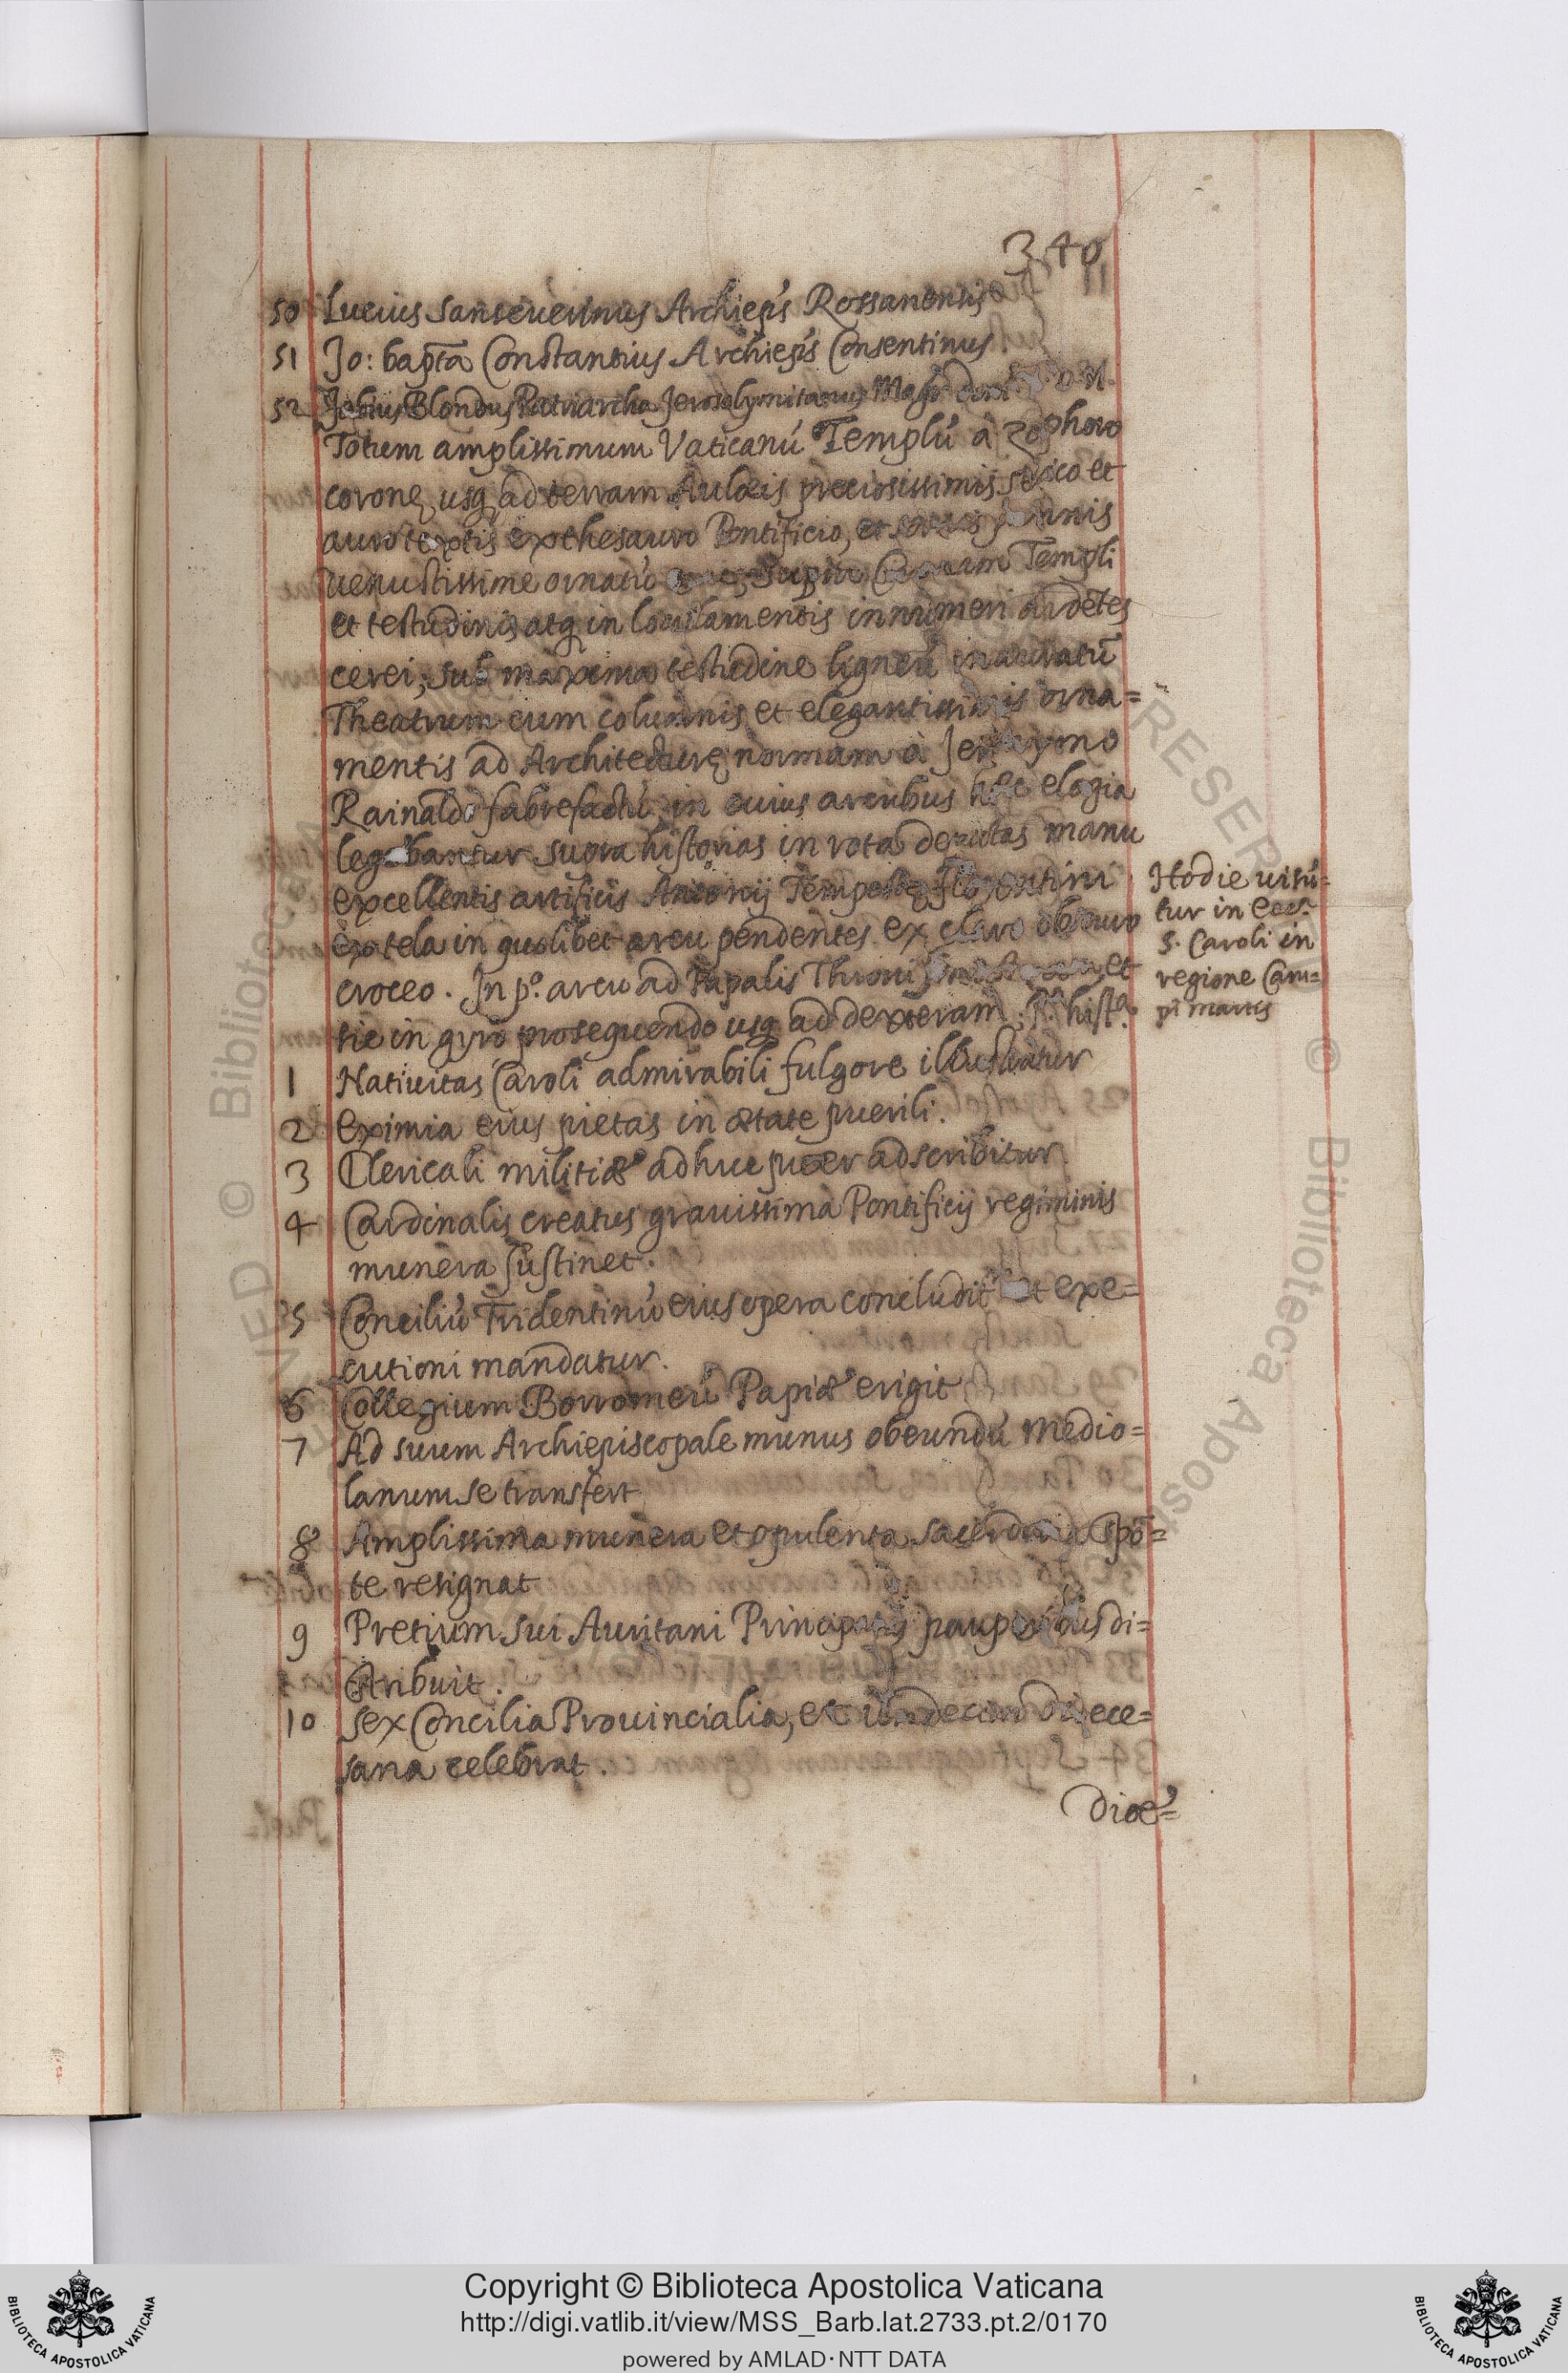 340
50 Lucius Sanseuerinus Archiep̃s Rossanensis
51 Jo: bapt̃a Constantius Archiep̃s Consentinus
52 Fabius Blondus Patriarcha Jerosolymitanus Magr. dom
Totum amplissimum Vaticanũ Templũ à Zophoro
coronę usq̃ ad terram Aulæis preciosissimis serico et
auro textis ex thesauro Pontificio, et
uenustissime ornatũ supra Templi
et testudinis atq̃ in loculamentis innumeri ardẽtes
cerei; sub maxima testudine ligneũ inauratũ
Theatrum cum columnis et elegantissimis orna=
mentis ad Architecturę normam à Jeronymo
Rainaldo fabrefactũ, in cuius arcubus hęc elogia
legebantur supra historias in rota depictas manu
excellentis artificis Antonij Tempestę florentini
ex tela in quolibet arcu pendentes ex claro obscuro
croceo. In p.º arcu ad Papalis Throni et
sic in gyro prosequendo usq̃ ad dexteram. hist.ª
Hodie uisũ=
tur in Eccl.ª
S. Caroli in
regione Cam=
pi martis
1 Natiuitas Caroli admirabili fulgore illustratur
2 Eximia eius pietas in ætate puerili.
3 Clericali militiæ adhuc puer adscribitur
4 Cardinalis creatus grauissima Pontificij regiminis
munera sustinet.
5 Conciliũ Tridentinũ eius opera concludit et exe=
cutioni mandatur.
6 Collegium Borromeũ Papiæ erigit
7 Ad suum Archiepiscopale munus obeundũ Medio=
lanum se transfert
8 Amplissima munera et opulenta sacerdotia spõ=
te resignat
9 Pretium sui Auritani Principatus pauperibus di=
stribuit.
10 Sex Concilia Prouincialia, et undecim Diœce=
sana celebrat.
Diœ=
Copyright © Biblioteca Apostolica Vaticana
http://digi.vatlib.it/view/MSS_Barb.lat.2733.pt.2/0170
powered by AMLAD·NTT DATA
BIBLIOTECA APOSTOLICA VATICANA
BIBLIOTECA APOSTOLICA VATICANA